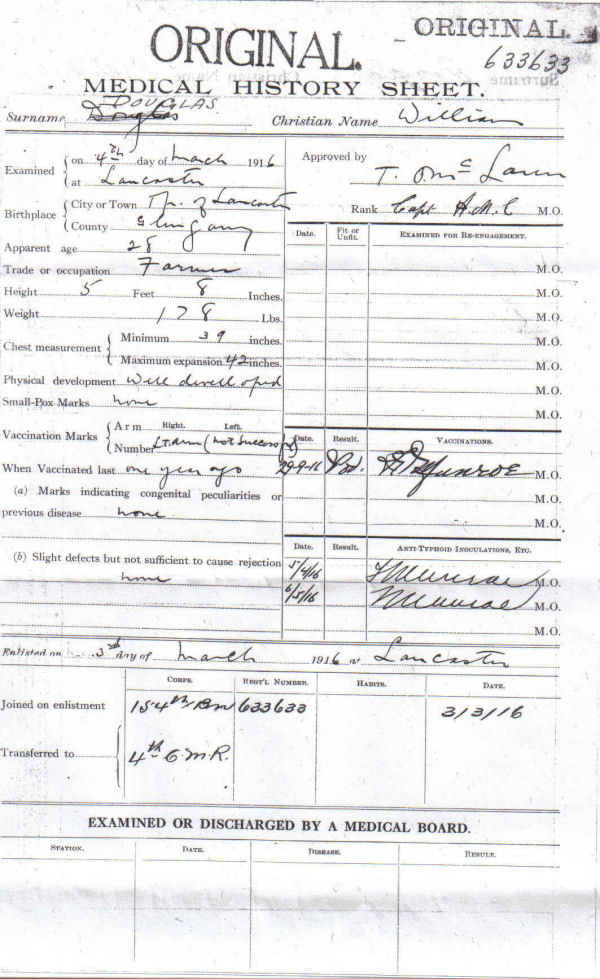 ORIGINAL.
ORIGINAL.
633633
MEDICAL HISTORY SHEET.
DOUGLAS
Surname Douglas Christian Name William
Examined { on 4th day of March 1916
at Lancaster
Approved by
Birthplace { City or Town Nr. of Lancaster
County Glengarry
Rank Capt A.M.C M.O.
Apparent age 28
Trade or occupation Farmer
Height 5 Feet 8 Inches.
Weight 178 Lbs.
Chest measurement { Minimum 39 inches.
Maximum expansion 42 inches.
Physical development well develloped
Small-Pox Marks none
Date. Fit or Unfit. EXAMINED FOR RE-ENGAGEMENT.
M.O.
M.O.
M.O.
M.O.
M.O.
M.O.
M.O.
Vaccination Marks { Arm Right. Left.
Number Lt. arm (not successful)
When Vaccinated last one year ago
(a) Marks indicating congenital peculiarities or
previous disease none
Date. Result. VACCINATIONS.
Munroe M.O.
M.O.
M.O.
(b) Slight defects but not sufficient to cause rejection
none
Date. Result. ANTI-TYPHOID INOCULATIONS, ETC.
5/4/16 Munroe M.O.
6/5/16 Munroe M.O.
M.O.
Enlisted on 3rd day of March 1916 at Lancaster
CORPS. REGT'L NUMBER. HABITS. DATE.
Joined on enlistment 154th Bn 633633 3/3/16
Transferred to 4th C.M.R.
EXAMINED OR DISCHARGED BY A MEDICAL BOARD.
STATION. DATE. DISEASE. RESULT.